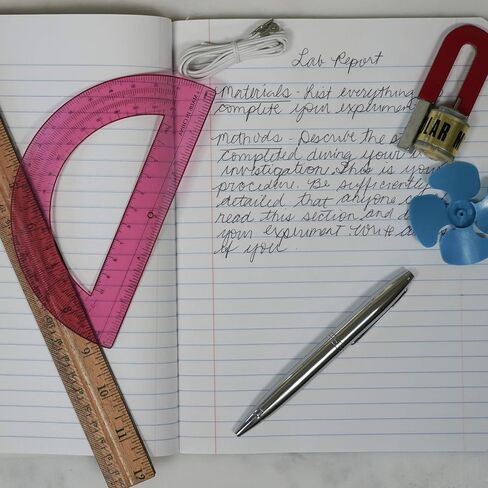 Lab Report
Materials - List everything
complete your experiment
Methods - Describe the
completed during your
investigation. This is your
procedure. Be sufficiently
detailed that anyone
read this section and
your experiment write
of you.
LAR
9
10
11
12